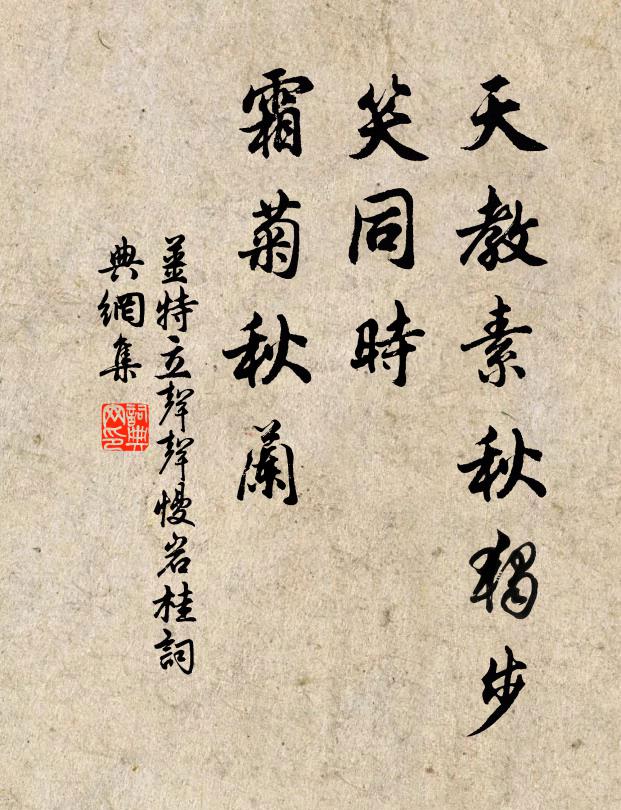 天教素秋獨步
笑同時
霜菊秋蘭
姜特立聲聲慢岩桂詞
典網集
詞典網印